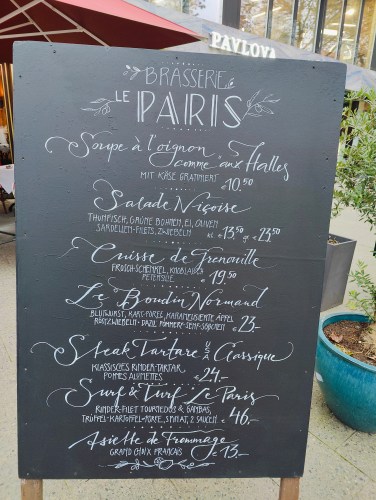 PAVLOVA
BRASSERIE
LE PARIS
Soupe à l'oignon
comme "aux Halles
MIT KÄSE GRATINIERT
€10,50
Salade Niçoise
THUNFISCH, GRÜNE BOHNEN, EI, OLIVEN
SARDELLEN-FILETS, ZWIEBELN kl €13,50 gr € 23,50
Cuisse de Grenouille
FROSCH-SCHENKEL, KNOBLAUCH
PETERSILIE € 19,50
Le Boudin Normand
BLUTWURST, KART-PÜREE, KARAMELISIERTE ÄPFEL
RÖSTZWIEBELN - DAZU POMMERY-SENF-SÖSSCHEN €23,-
Steak Tartare Classique
KLASSISCHES RINDER-TARTAR,
POMMES ALUMETTES €24,-
Surf & Turf Le Paris
RINDER-FILET TOURNEDOS & GAMBAS,
TRÜFFEL-KARTOFFEL-PÜREE, SPINAT, 2 SAUCEN € 46,-
Asiette de Frommage
GRAND CHOIX FRANÇAIS €13,-